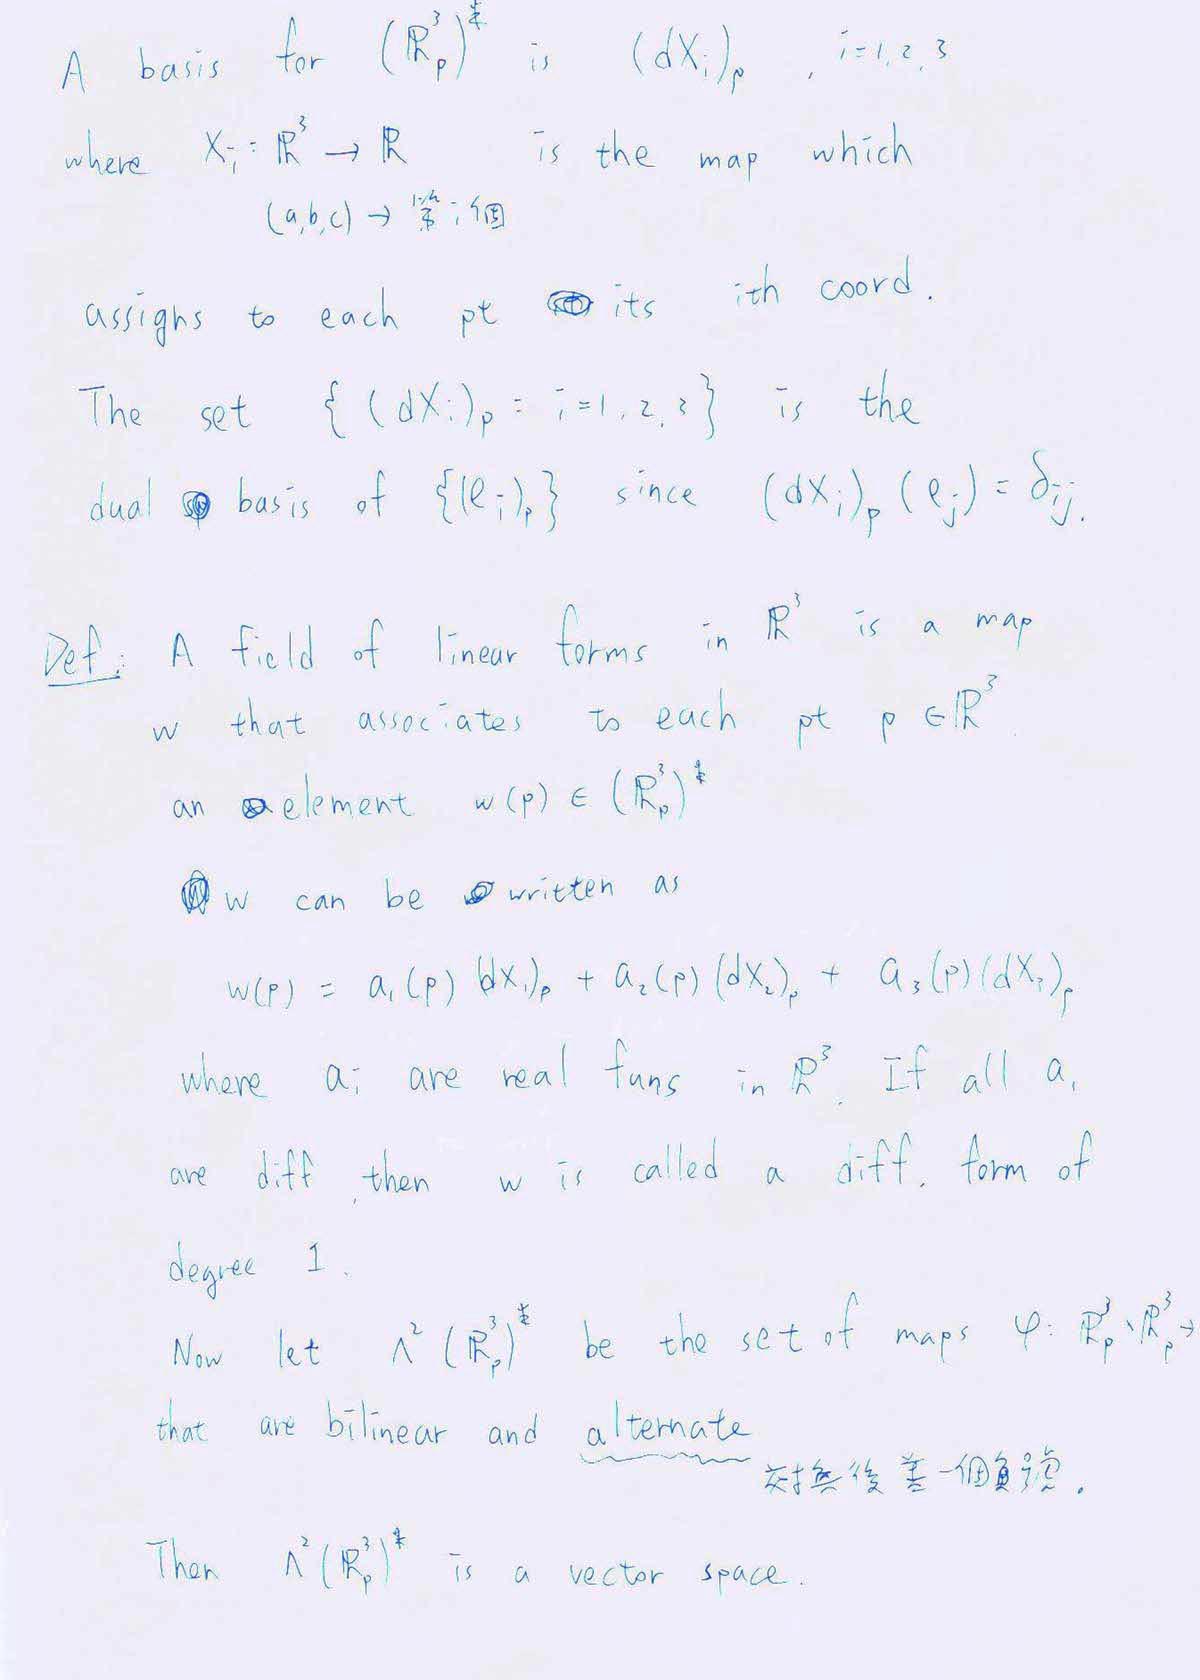 A basis for (ℝ³ₚ)* is (dXᵢ)ₚ , i=1,2,3
where Xᵢ : ℝ³ → ℝ is the map which
(a,b,c) → 第i個
assigns to each pt its ith coord.
The set { (dXᵢ)ₚ : i=1,2,3 } is the
dual basis of {(eᵢ)ₚ} since (dXᵢ)ₚ (eⱼ) = δᵢⱼ.
Def: A field of linear forms in ℝ³ is a map
w that associates to each pt p ∈ ℝ³
an element w(p) ∈ (ℝ³ₚ)*
w can be written as
w(p) = a₁(p) (dX₁)ₚ + a₂(p) (dX₂)ₚ + a₃(p) (dX₃)ₚ
where aᵢ are real funs in ℝ³. If all aᵢ
are diff, then w is called a diff. form of
degree 1.
Now let Λ² (ℝ³ₚ)* be the set of maps φ: ℝ³ₚ × ℝ³ₚ →
that are bilinear and alternate
交換後差一個負號.
Then Λ²(ℝ³ₚ)* is a vector space.